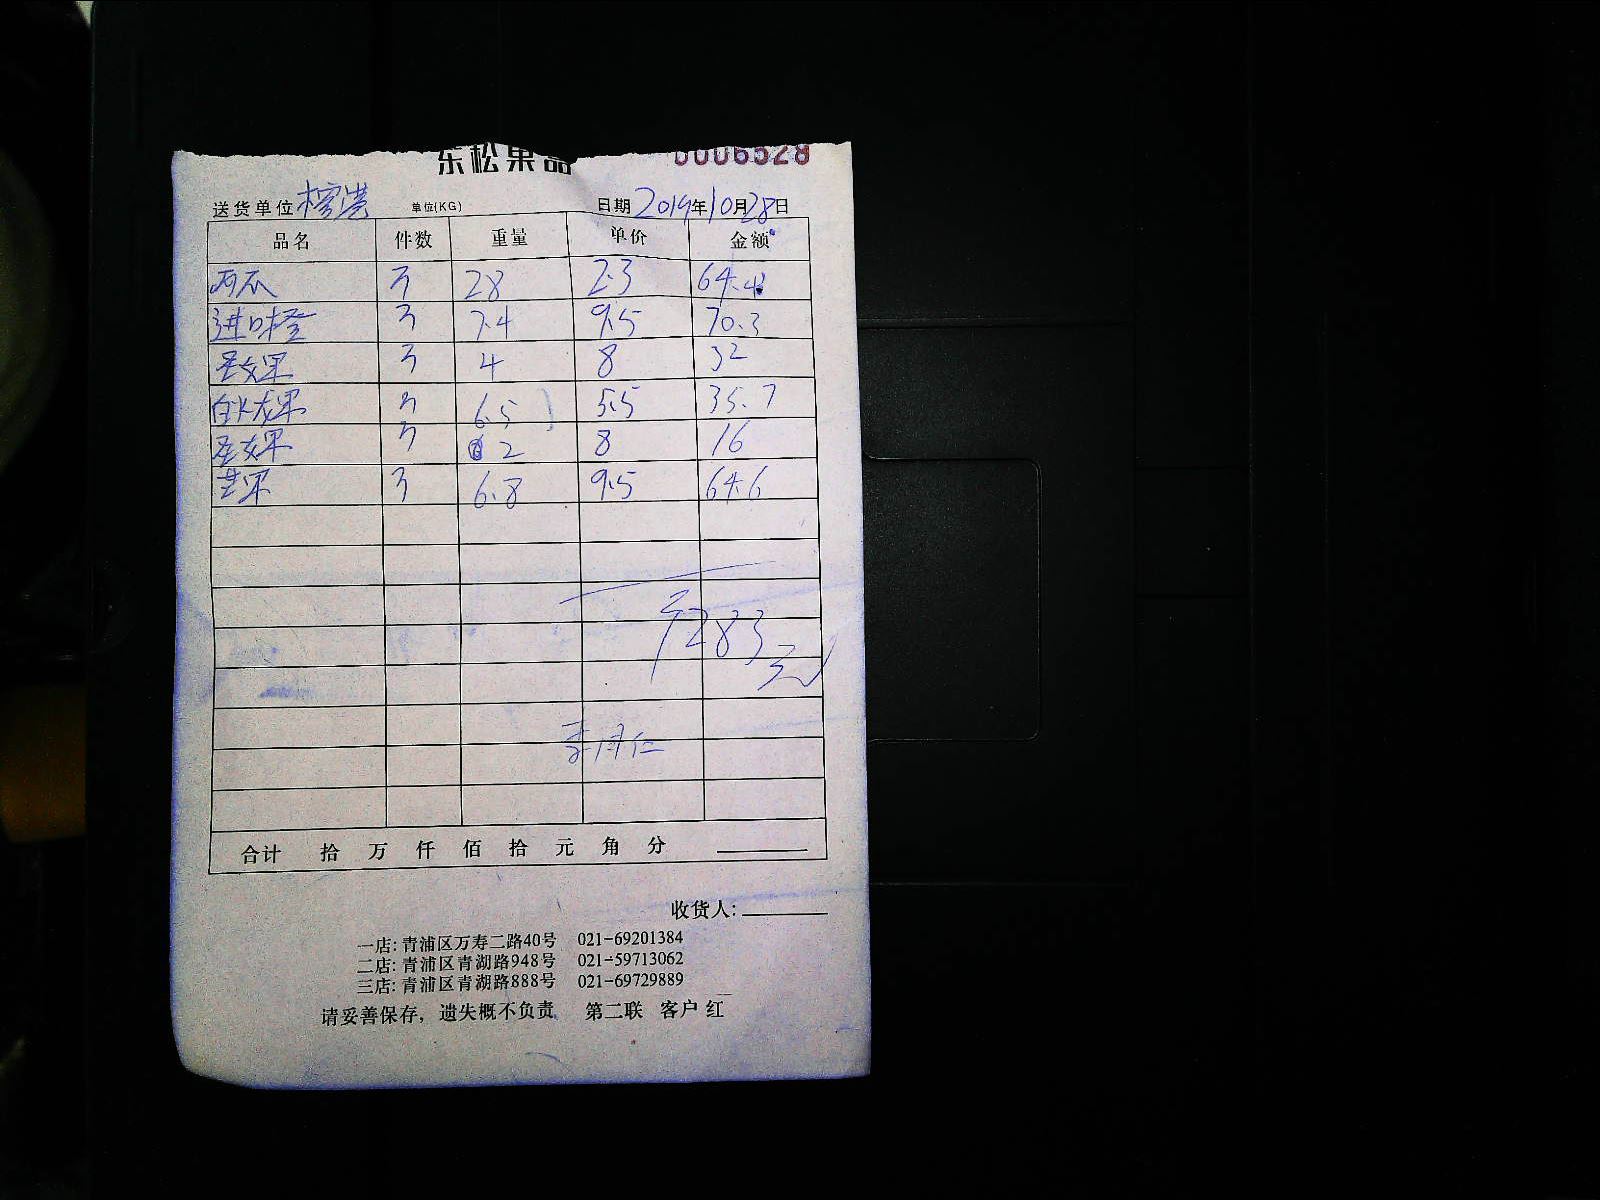 东松果品 0006528
送货单位 单位(KG) 日期 2019年10月28日
品名 件数 重量 单价 金额
西瓜 28 2.3 64.4
进口橙 7.4 9.5 70.3
圣女果 4 8 32
白火龙果 6.5 5.5 35.7
圣女果 2 8 16
芒果 6.8 9.5 64.6
283元
合计 拾 万 仟 佰 拾 元 角 分
收货人:
一店: 青浦区万寿二路40号 021-69201384
二店: 青浦区青湖路948号 021-59713062
三店: 青浦区青湖路888号 021-69729889
请妥善保存，遗失概不负责 第二联 客户 红